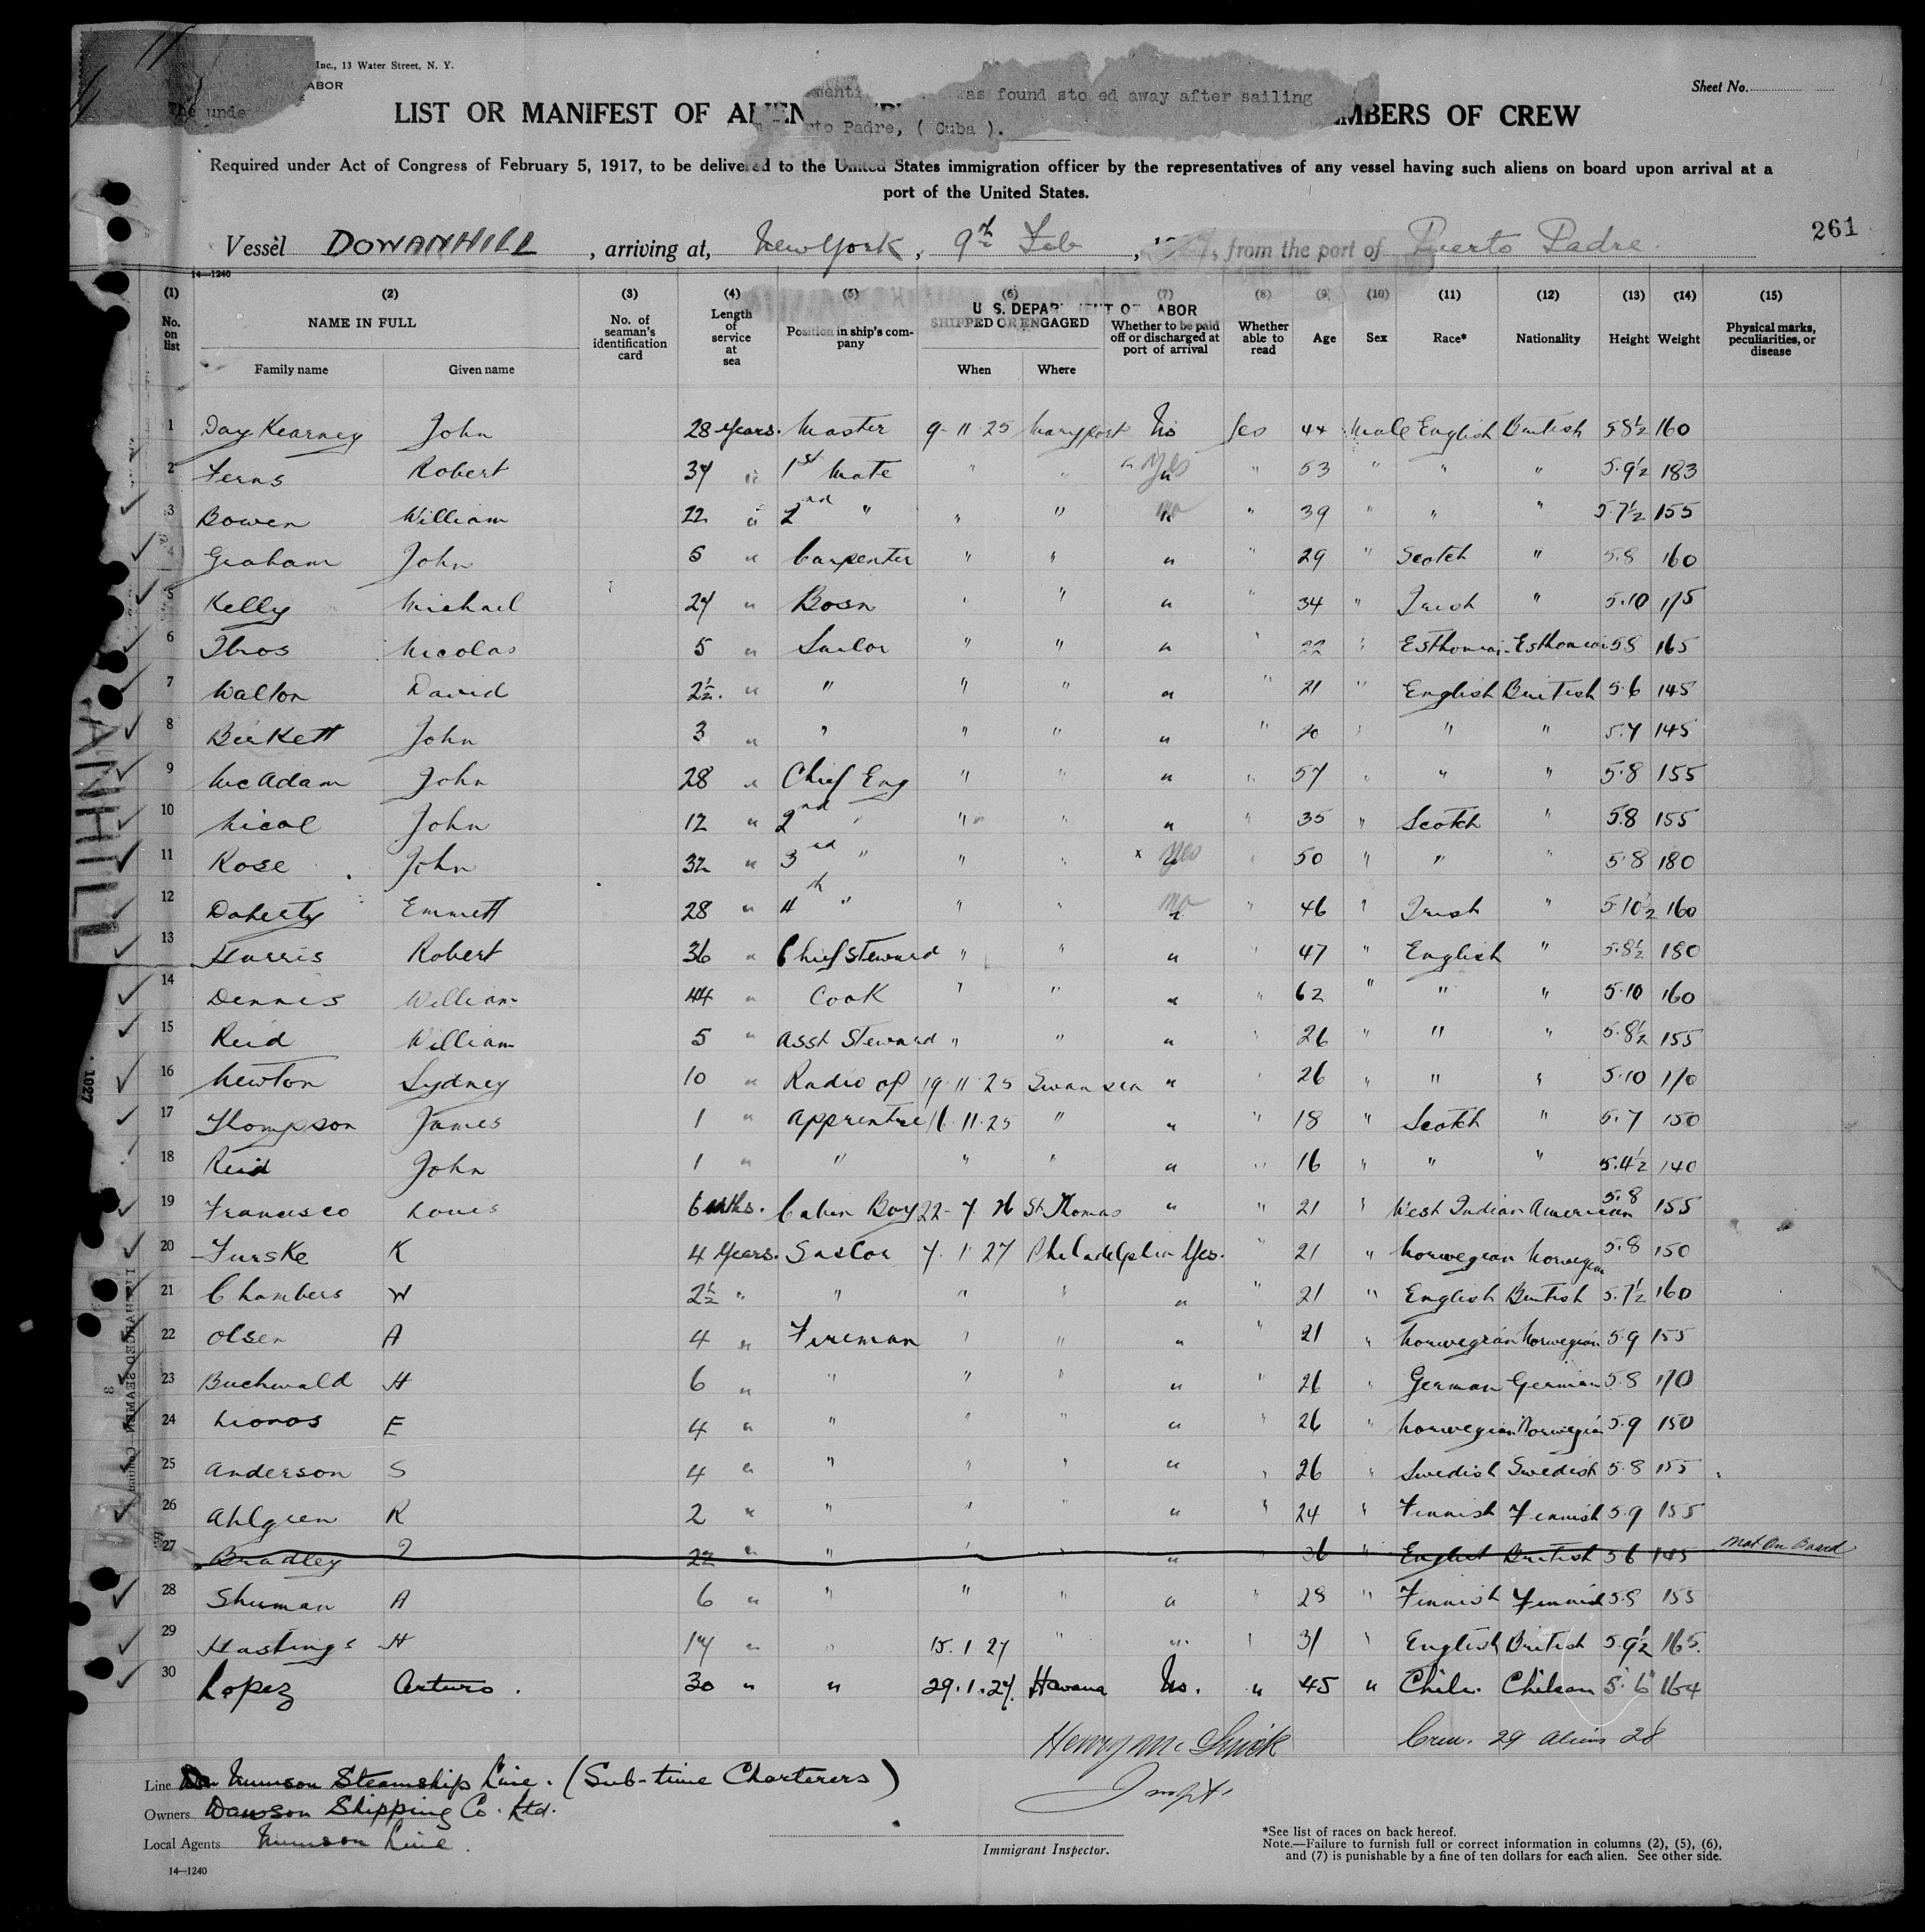 Inc., 13 Water Street, N. Y.
ABOR
The unde
as found sto ed away after sailing
rto Padre, ( Cuba ).
Sheet No.
LIST OR MANIFEST OF ALIEN MBERS OF CREW
Required under Act of Congress of February 5, 1917, to be delivered to the United States immigration officer by the representatives of any vessel having such aliens on board upon arrival at a
port of the United States.
261
Vessel DOWANHILL , arriving at, New York , 9th Feb , , from the port of Puerto Padre
14—1240
U. S. DEPAR ENT OF LABOR
(1) (2) (3) (4) (5) (6) (7) (8) (9) (10) (11) (12) (13) (14) (15)
No. on list NAME IN FULL Family name Given name No. of seaman's identification card Length of service at sea Position in ship's company SHIPPED OR ENGAGED When Where Whether to be paid off or discharged at port of arrival Whether able to read Age Sex Race* Nationality Height Weight Physical marks, peculiarities, or disease
1 Day Kearney John 28 years. Master 9-11-25 Maryport No Yes 44 Male English British 5 8½ 160
2 Ferns Robert 34 " 1st Mate " " Yes " 53 " " " 5.9½ 183
3 Bowen William 22 " 2nd " " " no " 39 " " " 5.7½ 155
4 Graham John 5 " Carpenter " " " " 29 " Scotch " 5.8 160
5 Kelly Michael 24 " Bosn " " " " 34 " Irish " 5.10 175
6 Nicolas 5 " Sailor " " " " 22 " Esthonian Esthonian 5 8 165
7 Walton David 2½ " " " " " " 21 " English British 5.6 145
8 Birkett John 3 " " " " " " 20 " " " 5.7 145
9 McAdam John 28 " Chief Eng " " " " 57 " " " 5.8 155
10 Nicol John 12 " 2nd " " " " " 35 " Scotch " 5.8 155
11 Rose John 32 " 3rd " " " x Yes " 50 " " " 5.8 180
12 Doherty Emmett 28 " 4th " " " no " 46 " Irish " 5.10½ 160
13 Harris Robert 36 " Chief Steward " " " " 47 " English " 5.8½ 180
14 Dennis William 44 " Cook " " " " 62 " " " 5.10 160
15 Reid William 5 " Asst Steward " " " " 26 " " " 5.8½ 155
16 Newton Sydney 10 " Radio Op 19.11.25 Swansea " " 26 " " " 5.10 170
17 Thompson James 1 " Apprentice 16.11.25 " " " 18 " Scotch " 5.7 150
18 Reid John 1 " " " " " " 16 " " " 5.4½ 140
19 Francisco Louis 6 mths. Cabin Boy 22-7-26 St Thomas " " 21 " West Indian American 5.8 155
20 Furske K 4 Years. Sailor 7.1.27 Philadelphia Yes. " 21 " Norwegian Norwegian 5.8 150
21 Chambers W 2½ " " " " " " 21 " English British 5.7½ 160
22 Olsen A 4 " Fireman " " " " 21 " Norwegian Norwegian 5.9 155
23 Buchwald H 6 " " " " " " 26 " German German 5.8 170
24 E 4 " " " " " " 26 " Norwegian Norwegian 5.9 150
25 Anderson S 4 " " " " " " 26 " Swedish Swedish 5.8 155
26 Ahlgren R 2 " " " " " " 24 " Finnish Finnish 5.9 155
27 Bradley 22 " " " " " " 36 " English British 5 6 145 Not On Board
28 Shuman A 6 " " " " " " 28 " Finnish Finnish 5.8 155
29 Hastings H 14 " " 15.1.27 " " " 31 " English British 5.9½ 165.
30 Lopez Arturo. 30 " " 29.1.27. Havana No. " 45 " Chile. Chilean 5.6 164
ANHILL
1927
Crew. 29 Aliens 28
Line Munson Steamship Line. (Sub-time Charterers)
Owners Dawson Shipping Co. Ltd.
Local Agents Munson Line.
Immigrant Inspector.
*See list of races on back hereof.
Note.—Failure to furnish full or correct information in columns (2), (5), (6),
and (7) is punishable by a fine of ten dollars for each alien. See other side.
14—1240